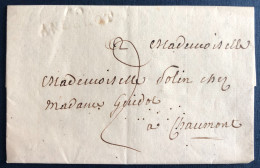 A Mademoiselle
Mademoiselle Dolin chez
Madame Guidot
à Chaumont